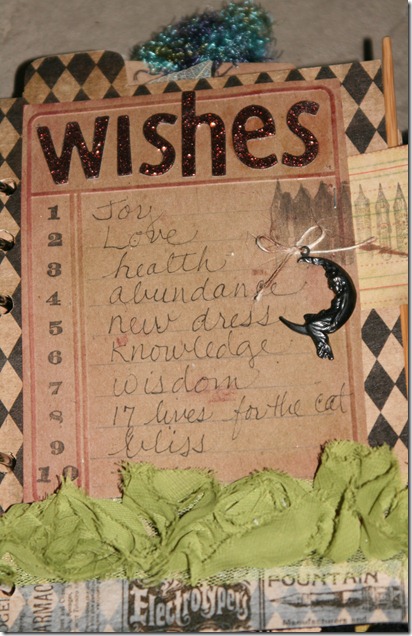 wishes
1 Joy
2 Love
3 health
4 abundance
5 new dress
6 Knowledge
7 wisdom
8 17 lives for the cat
9 bliss
10
ARMAC
Electrotypers
FOUNTAIN